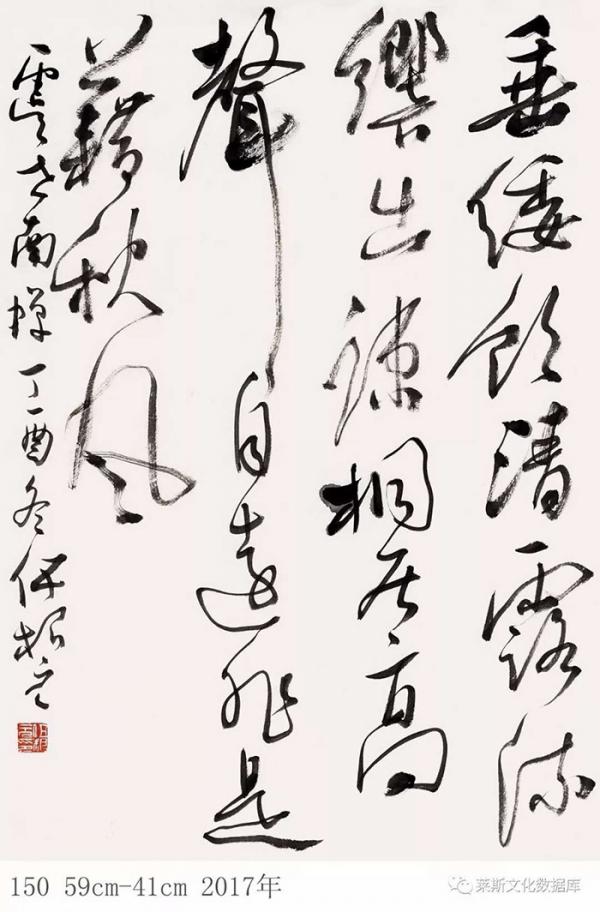 垂緌飲清露流
響出疎桐居高
聲自遠非是
藉秋風
虞世南蟬丁酉冬
150 59cm-41cm 2017年
莱斯文化数据库